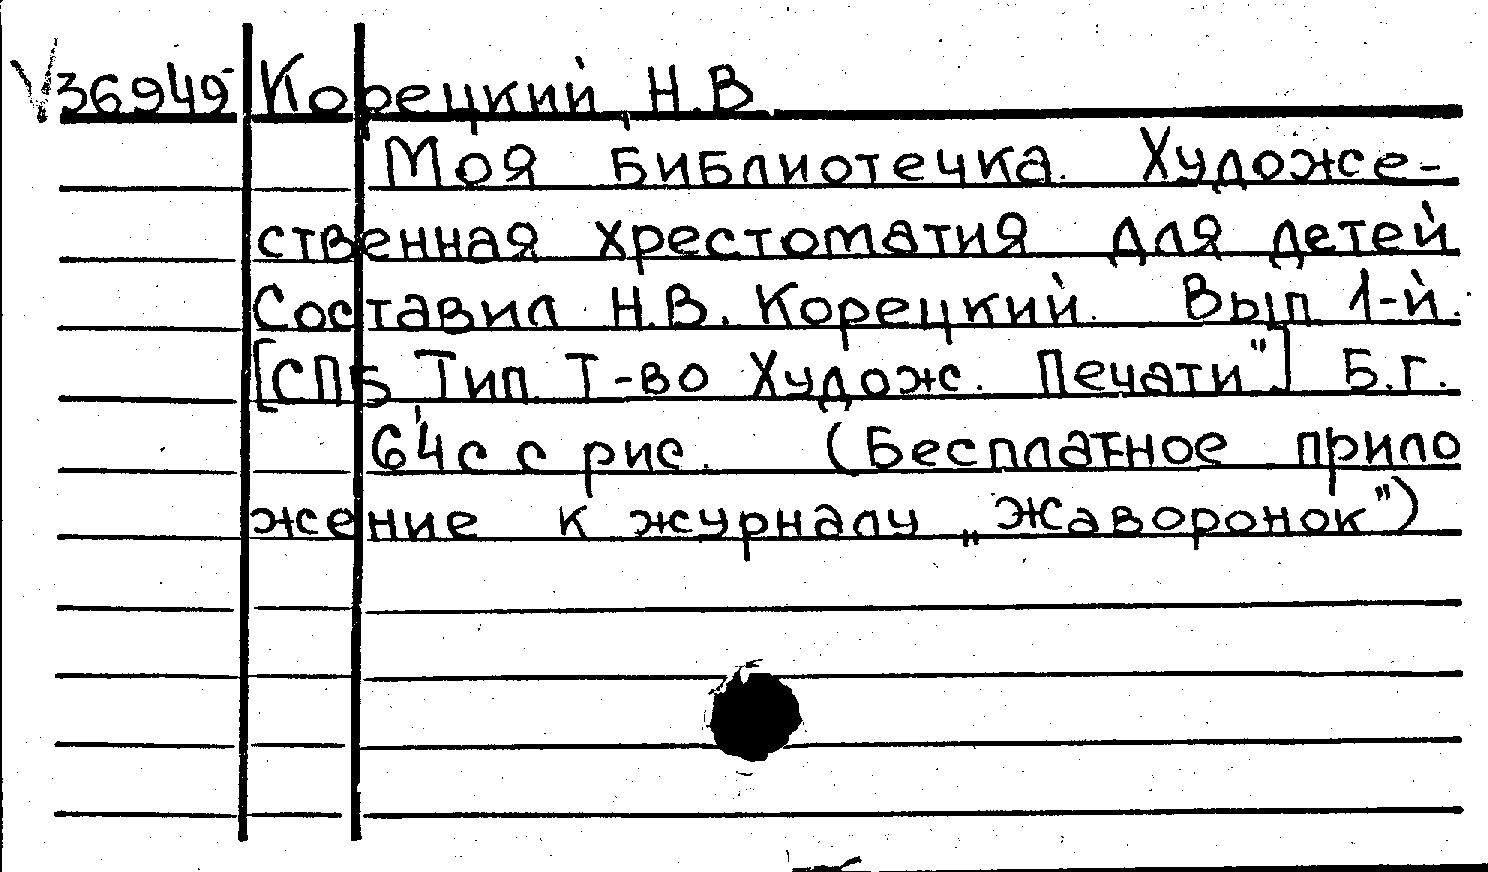 V36949 Корецкий, Н.В.
Моя библиотечка. Художе-
ственная хрестоматия для детей
Составил Н.В. Корецкий. Вып 1-й.
[СПБ, Тип. Т-во Худож. Печати"] Б.г.
64с с рис. (Бесплатное прило
жение к журналу „Жаворонок")